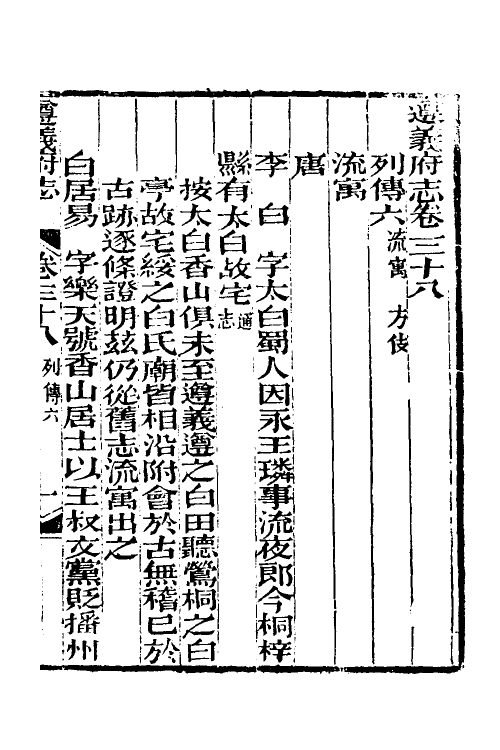 遵義府志卷三十八
列傳六 流寓 方伎
流寓
唐
李白 字太白蜀人因永王璘事流夜郎今桐梓
縣有太白故宅通志
按太白香山俱未至遵義遵之白田聽鶯桐之白
亭故宅綏之白氏廟皆相沿附會於古無稽已於
古跡逐條證明玆仍從舊志流寓出之
白居易 字樂天號香山居士以王叔文黨貶播州
遵義府志 卷三十八 列傳六 一